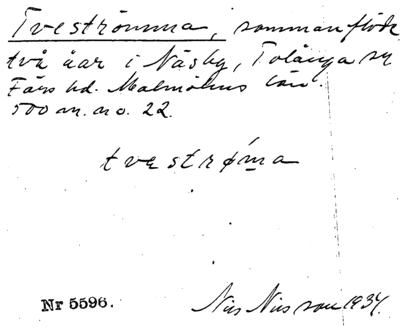 Tveströmma, sammanflöde
två åar i Näsby, Tolånga sn
Färs hd. Malmöhus län.
500 m. no. 22.
tvestrǿm̱a
Nr 5596.
Nils Nilsson 1934.